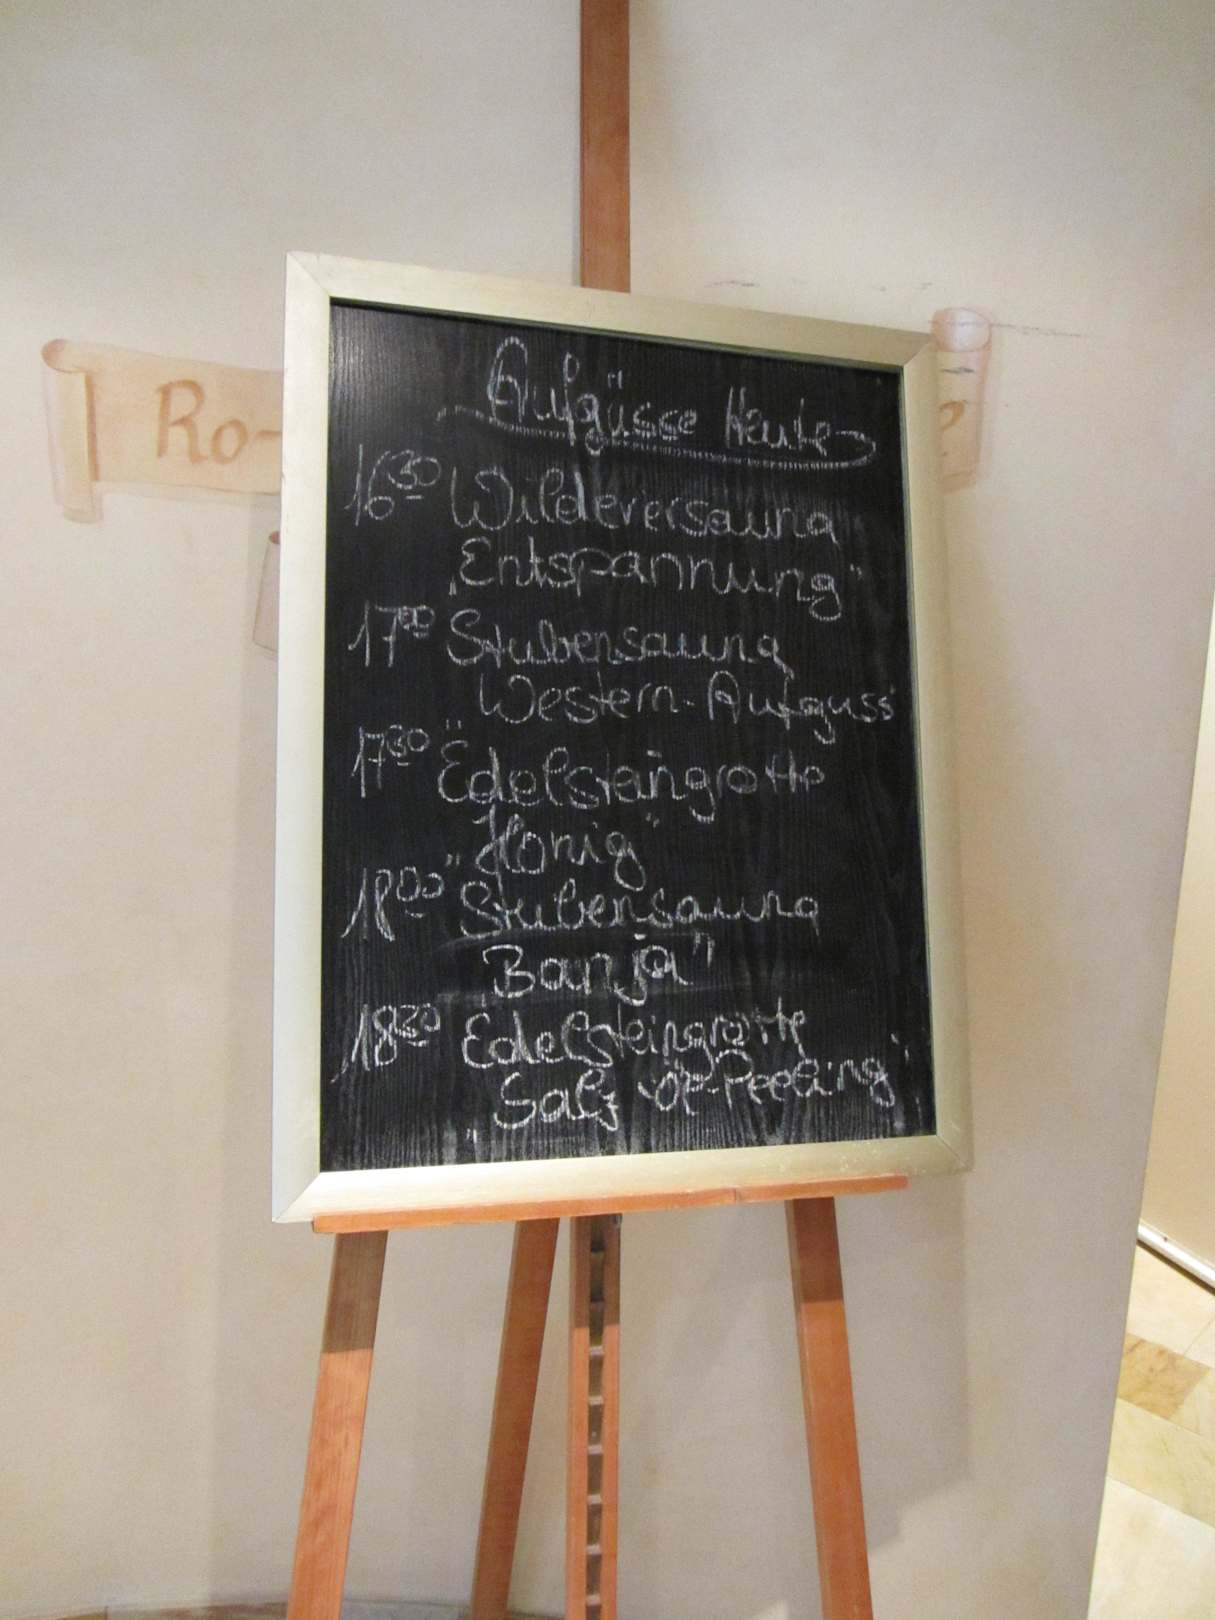 Aufgüsse Heute
16 30 Wilderersauna
„Entspannung"
17 00 Stubensauna
Western-Aufguss
17 30 "Edelsteingrotte
Honig"
18 00 "Stubensauna
„Banja"
18 30 Edelsteingrotte
„Salz-Öl-Peeling"
Ro-
e